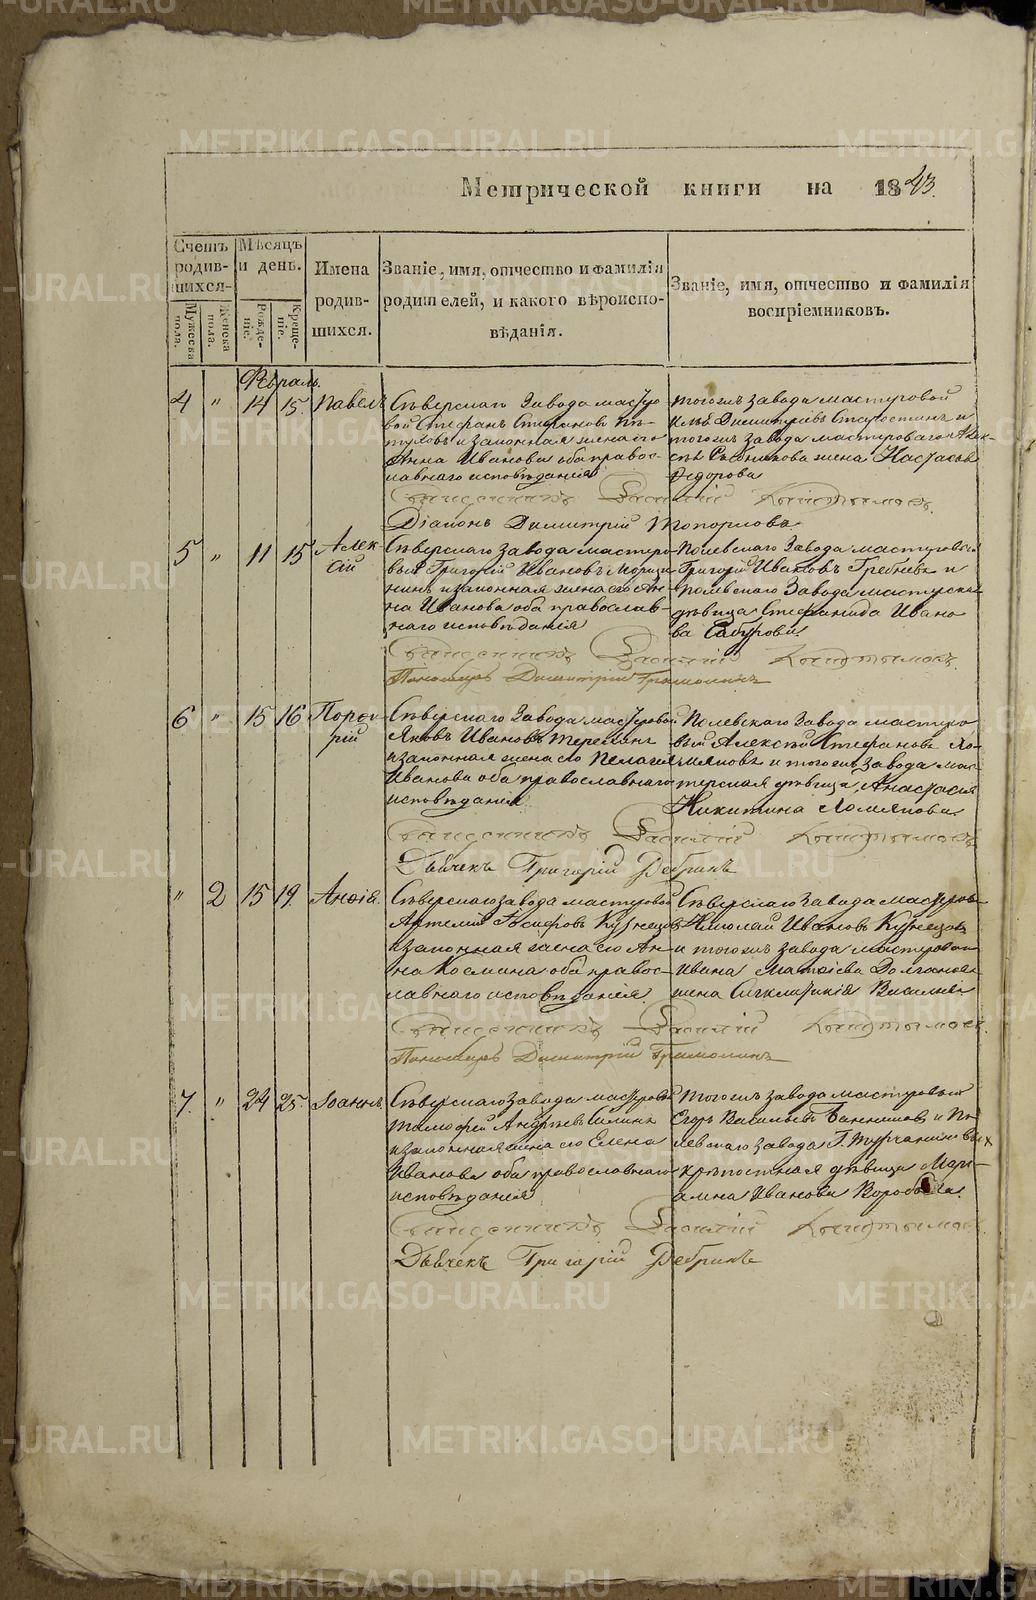 Метрической книги на 1843.
Счетъ родив-шихся.
Мужеска пола.
Женска пола.
Мѣсяцъ и день.
Рожде-ніе.
Креще-ніе.
Имена родив-шихся.
Званіе, имя, отчество и фамилія
родителей, и какого вѣроиспо-
вѣданія.
Званіе, имя, отчество и фамилія
воспріемниковъ.
Февраль.
4 " 14 15. Павелъ
Сѣверскаго Завода мастеро
вой Стефанъ Стефановъ
и законная жена его
Анна Иванова оба правос-
лавнаго исповѣданія
тогожъ завода мастеровой
Димитріевъ Старостинъ и
тогожъ завода мастероваго
жена Настасья
Федорова
Священникъ Василій
Діаконъ Димитрій Топорковъ
5 " 11 15 Алек-
сій
Сѣверскаго завода мастеро
вый Григорій Ивановъ
и законная жена его Ан-
на Иванова оба православ-
наго исповѣданія
Полевскаго Завода мастеровый
Григорій Ивановъ Гребневъ и
Полевскаго Завода мастерска
дѣвица Стефанида Ивано
ва Сабурова
Священникъ Василій
Пономарь Димитрій Грамолинъ
6 " 15 16 Порфи-
рій
Сѣверскаго Завода мастеровой
Яковъ Ивановъ
и законная жена его Пелагея
Иванова оба православнаго
исповѣданія
Полевскаго Завода мастеро
вый Алексѣй Стефановъ
и тогожъ завода мас
терская дѣвица Анастасія
Никитина
Священникъ Василій
Дьячекъ Григорій Ребринъ
" 2 15 19. Анфія.
Сѣверскаго завода мастеровой
Артемій Іосифовъ Кузнецовъ
и законная жена его Ан-
на Косьмина оба правос-
лавнаго исповѣданія
Сѣверскаго Завода мастеров
Николай Ивановъ Кузнецовъ
и тогожъ завода мастероваго
Ивана Матѳіева
жена Васильева
Священникъ Василій
Пономарь Димитрій Грамолинъ
7. " 24 25. Іоаннъ.
Сѣверскаго завода мастеровой
Тимофей Андреевъ
и законная жена его Елена
Иванова оба православнаго
исповѣданія
Тогожъ завода мастеровый
Егоръ Васильевъ и По
левскаго завода Г. Турчаниновыхъ
крѣпостная дѣвица Марі-
амна Иванова Воробьева.
Священникъ Василій
Дьячекъ Григорій Ребринъ
METRIKI.GASO-URAL.RU